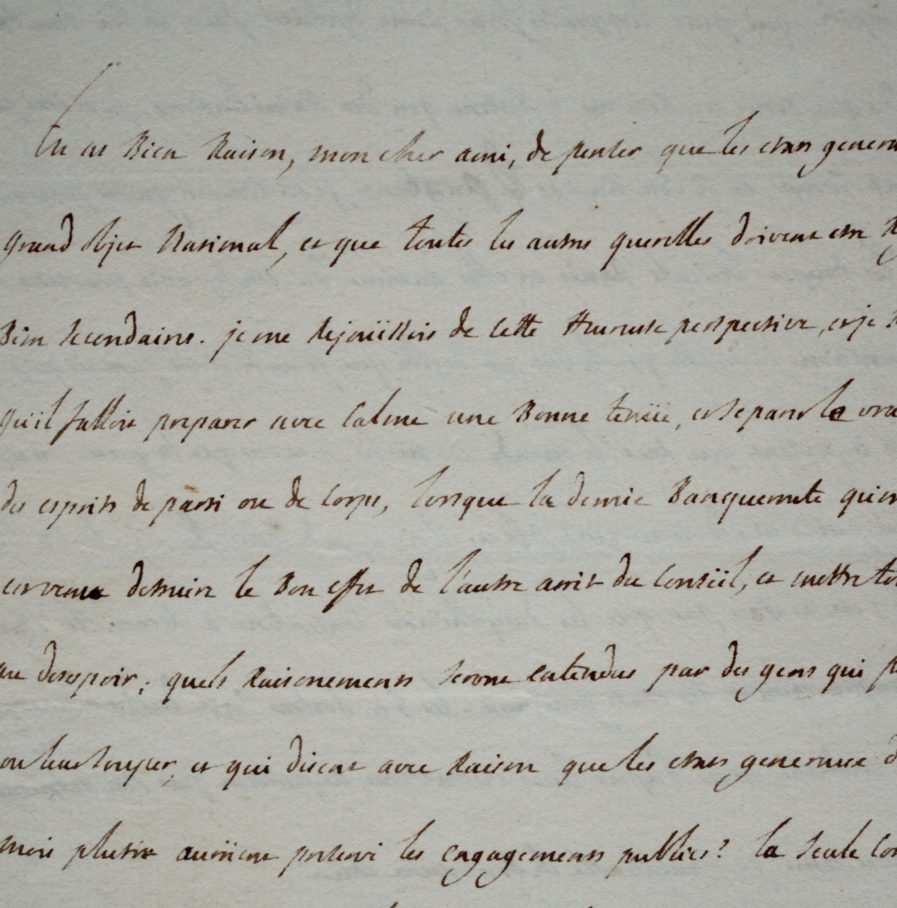 Tu as Bien Raison, mon cher ami, de penser que les etats genera
grand objet National, et que toutes les autres querelles doivent etre
Bien secondaires. je me rejouissois de cette heureuse perspective, et je
qu'il falloit preparer avec calme une Bonne tenüe, et separer le
des esprits de parti ou de corps, lorsque la demie Banqueroute qui
est venue detruire le Bon effet de l'autre arrêt du Conseïl, et mettre
au desespoir; quels Raisonements seront entendus par des gens qui
ou leur souper, et qui disent avec Raison que les etats generaux
mois plustot auroient prevenu les engagements publics? la seule